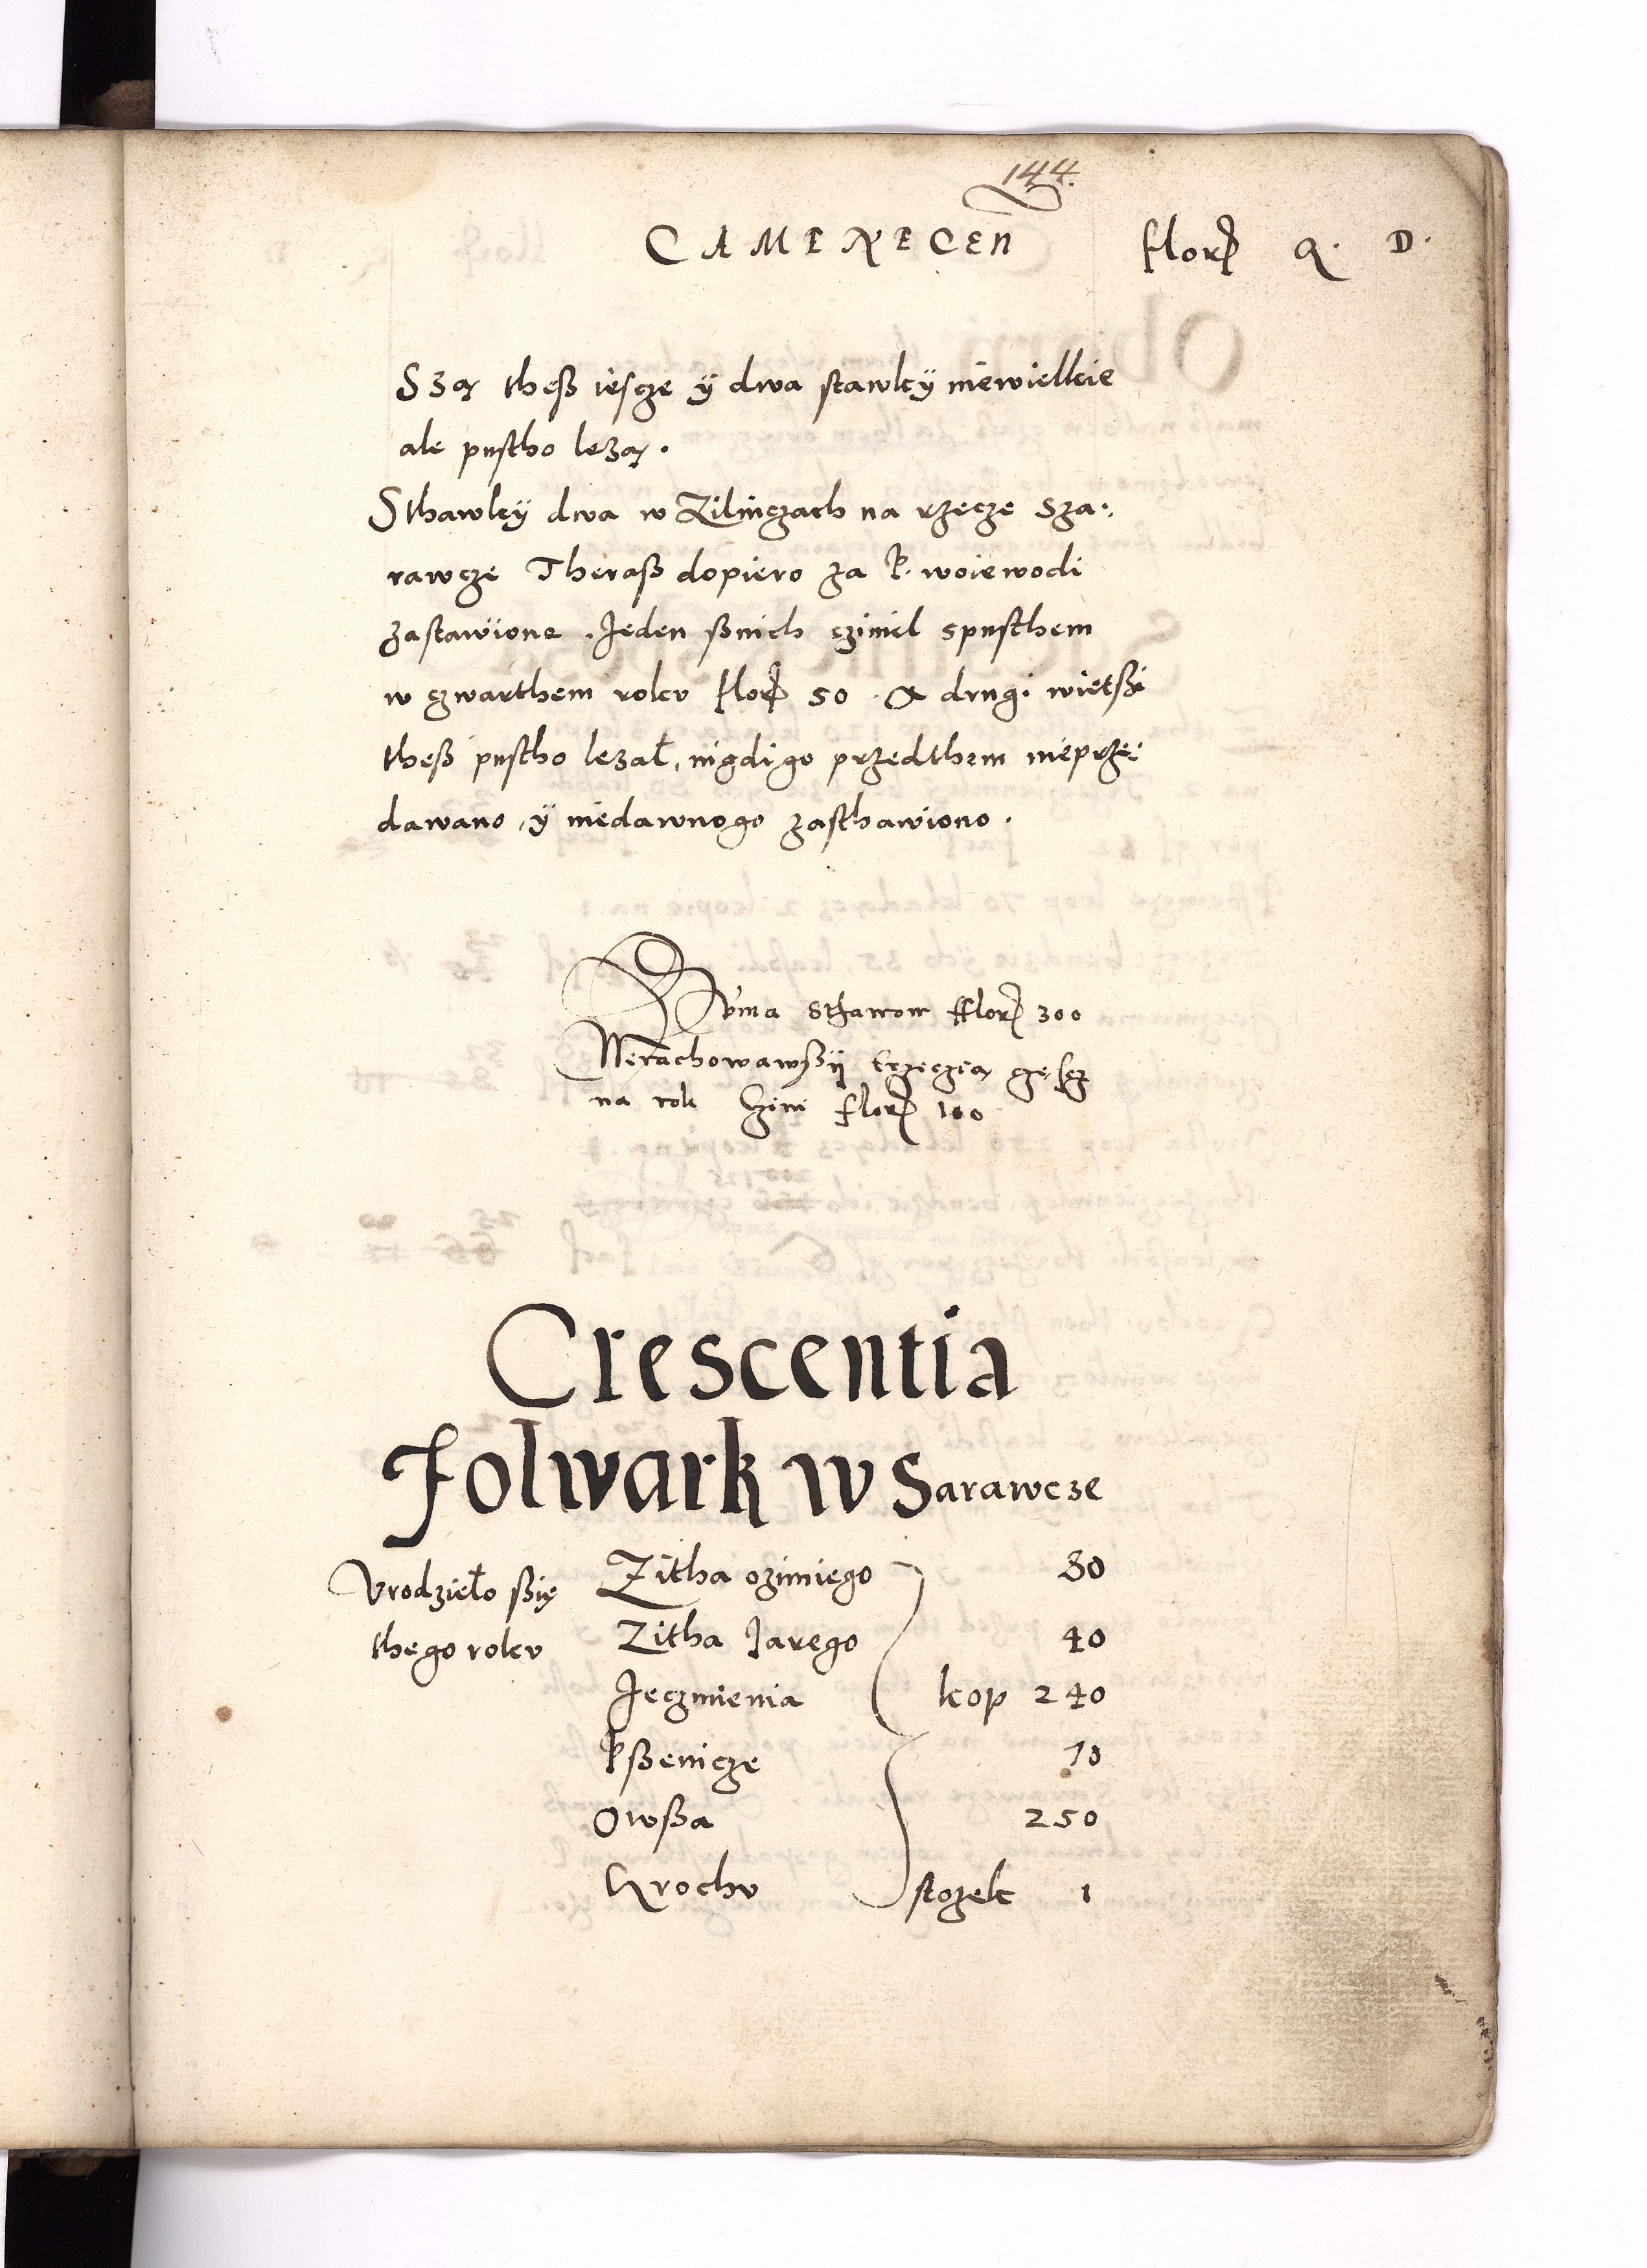 144.
CAMENECEN flor Q. D.
Szą theß iescze ÿ dwa stawkÿ niewielkie
ale pustho leżą.
Sthawkÿ dwa w Zilinczach na rzecze Sza:
rawcze Theraß dopiero za P. woiewodi
zastawione. Jeden ßnich czinił spusthem
w czwarthem rokv flor 50. A drugi wietßi
theß pustho leżał, nigdi go przedthem nieprze:
dawano, ÿ niedawno go zasthawiono.
Suma Sthawow flor 300
Werachowawßÿ trzeczią częscz
na rok Czini flor 100
Crescentia
Folwark w Sarawcze
Vrodzieło ßię Zitha ozimiego 80
thego rokv Zitha Jarego 40
Jeczmienia kop 240
Pßenicze 70
Owßa 250
Grochv stozek 1